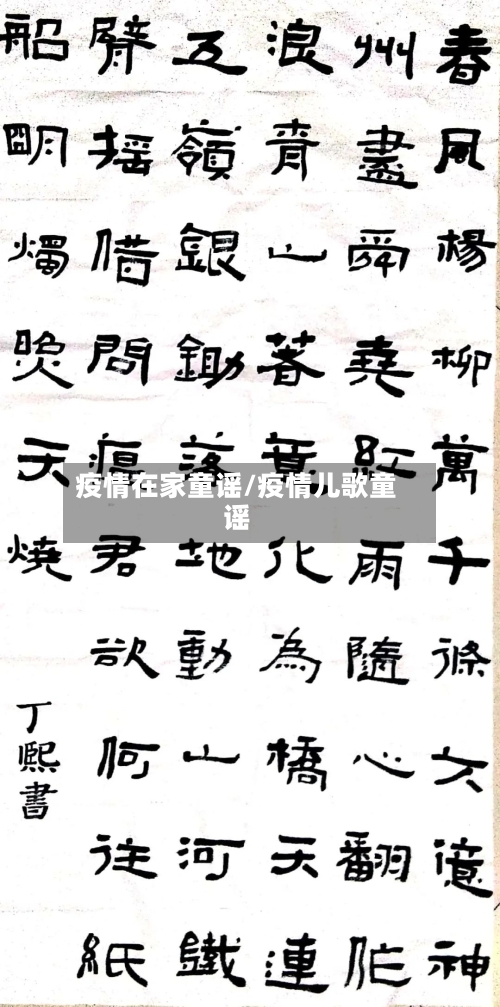 春風楊柳萬千條六億神
州盡舜堯紅雨隨心翻作
浪青山著意化為橋天連
五嶺銀鋤落地動山河鐵
臂搖借問瘟君欲何往紙
船明燭照天燒
丁熙書
疫情在家童谣/疫情儿歌童
谣